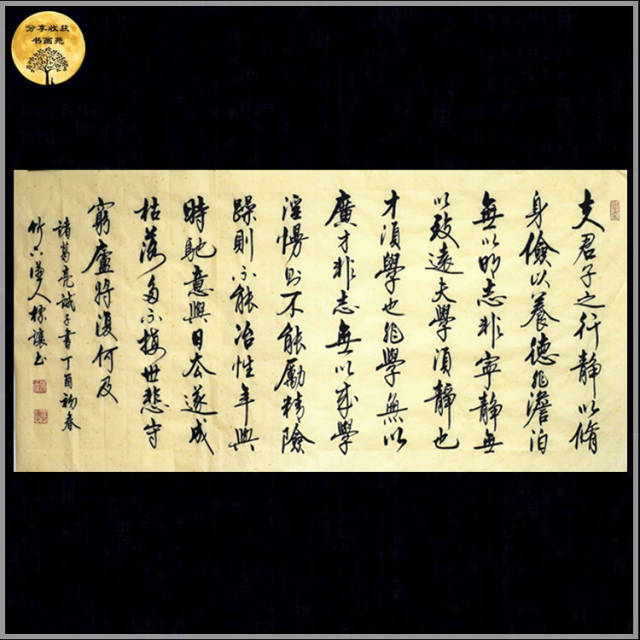 分享收获
书画苑
夫君子之行静以脩
身儉以養德非澹泊
無以明志非寧静無
以致遠夫學須静也
才須學也非學無以
廣才非志無以成學
淫慢則不能勵精險
躁則不能冶性年與
時馳意與日去遂成
枯落多不接世悲守
窮廬將復何及
諸葛亮誡子書丁酉初春
竹人書